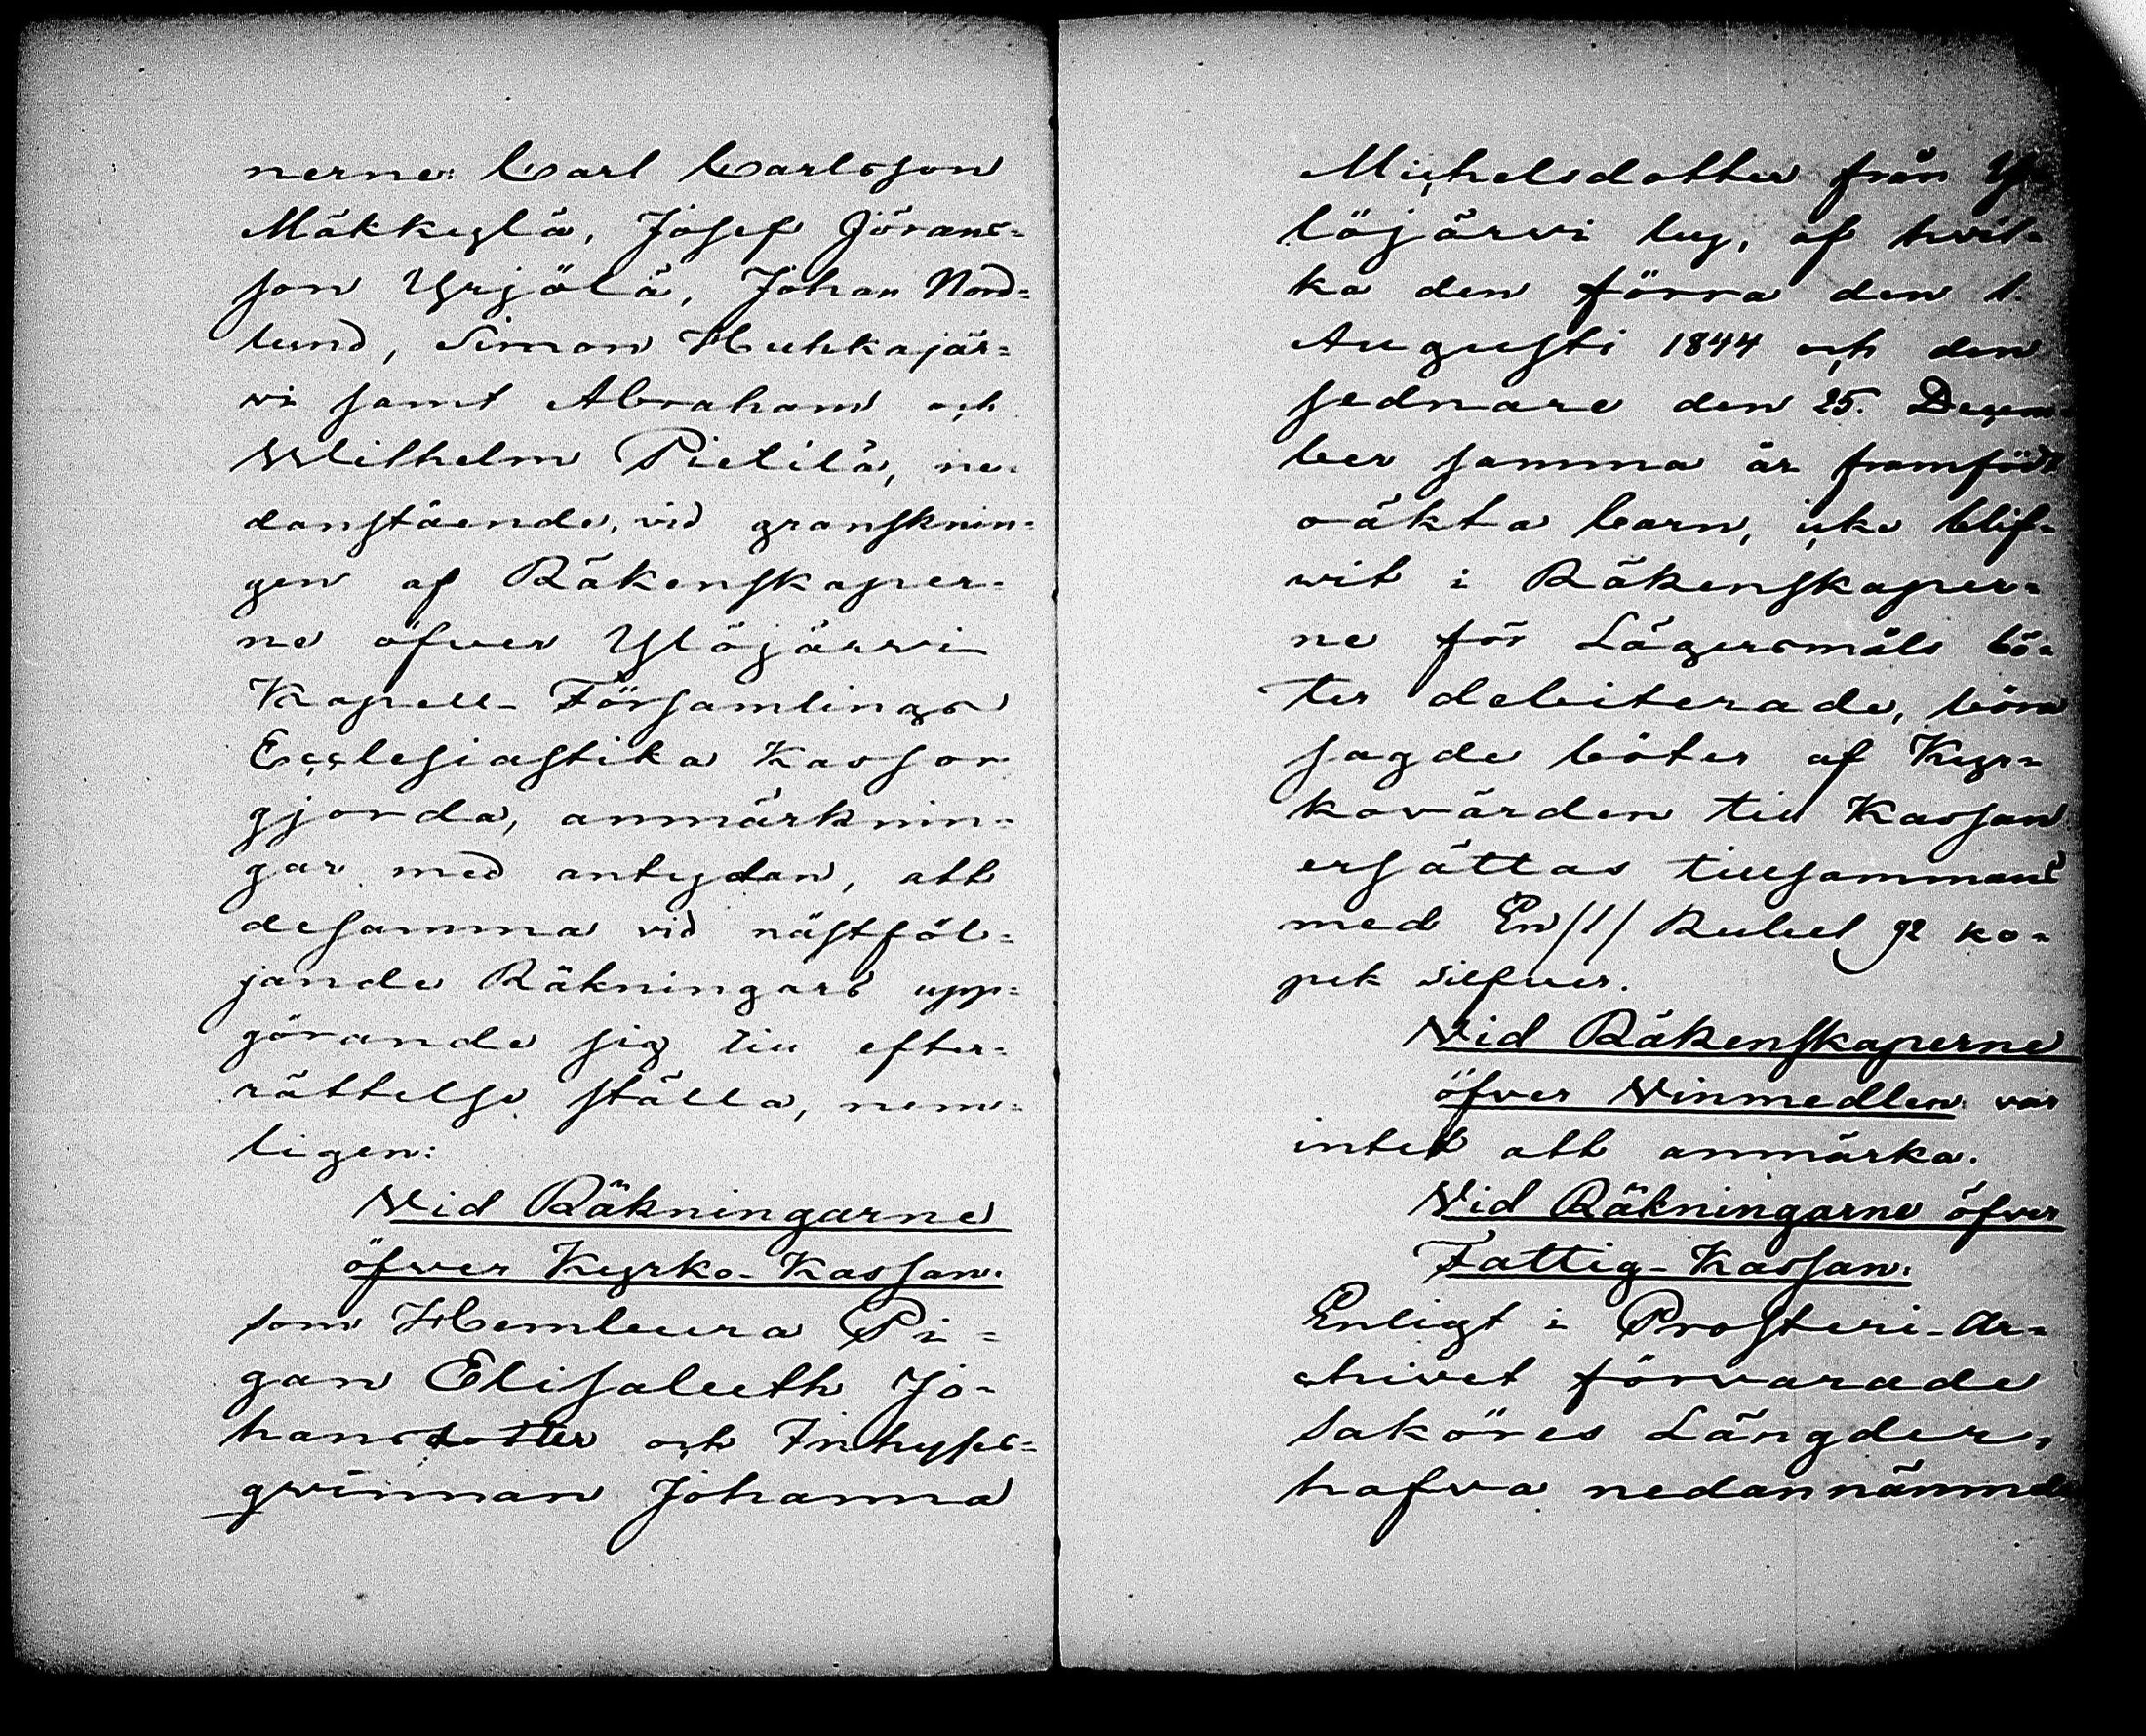 nerne: Carl Carlsson
Mäkkylä, Josef Jörans=
son Yrjölä, Johan Nord=
lund, Simon Huhkajär=
vi samt Abraham och
Wilhelm Pietilä, ne=
danstående, vid gransknin=
gen af Räkenskaper=
ne öfver Ylöjärvi
Kapell-Församlings
Ecclesiastika Kassor
gjorda, anmärknin=
gar med antydan, att
desamma vid nästföl=
jande Räkningars upp=
görande sig till efter=
rättelse ställa, nem=
ligen:
Vid Räkningarne
öfver Kyrko-Kassan.
som Hemleura Pi=
gan Elisabeth Jo=
hansdotter och Inhyses=
qvinnan Johanna
Michelsdotter från Y=
löjärvi by, af hvil=
ka den förra den 1.
Augusti 1844 och den
sednare den 25. Decem=
ber samma år framfödt
oäkta barn, icke blif=
vit i Räkenskaper=
ne för Lägersmåls bö=
ter debiterade, böra
sagde böter af Kyr=
kovärden till Kassan
ersättas tillsammans
med En /1/ Rubel 92 ko=
pek silfver.
Vid Räkenskaperne
öfver Vinmedlen var
intet att anmärka.
Vid Räkningarne öfver
Fattig-Kassan.
Enligt i Prosteri-Ar=
chivet förvarade
saköres Längder,
hafva nedannämnde